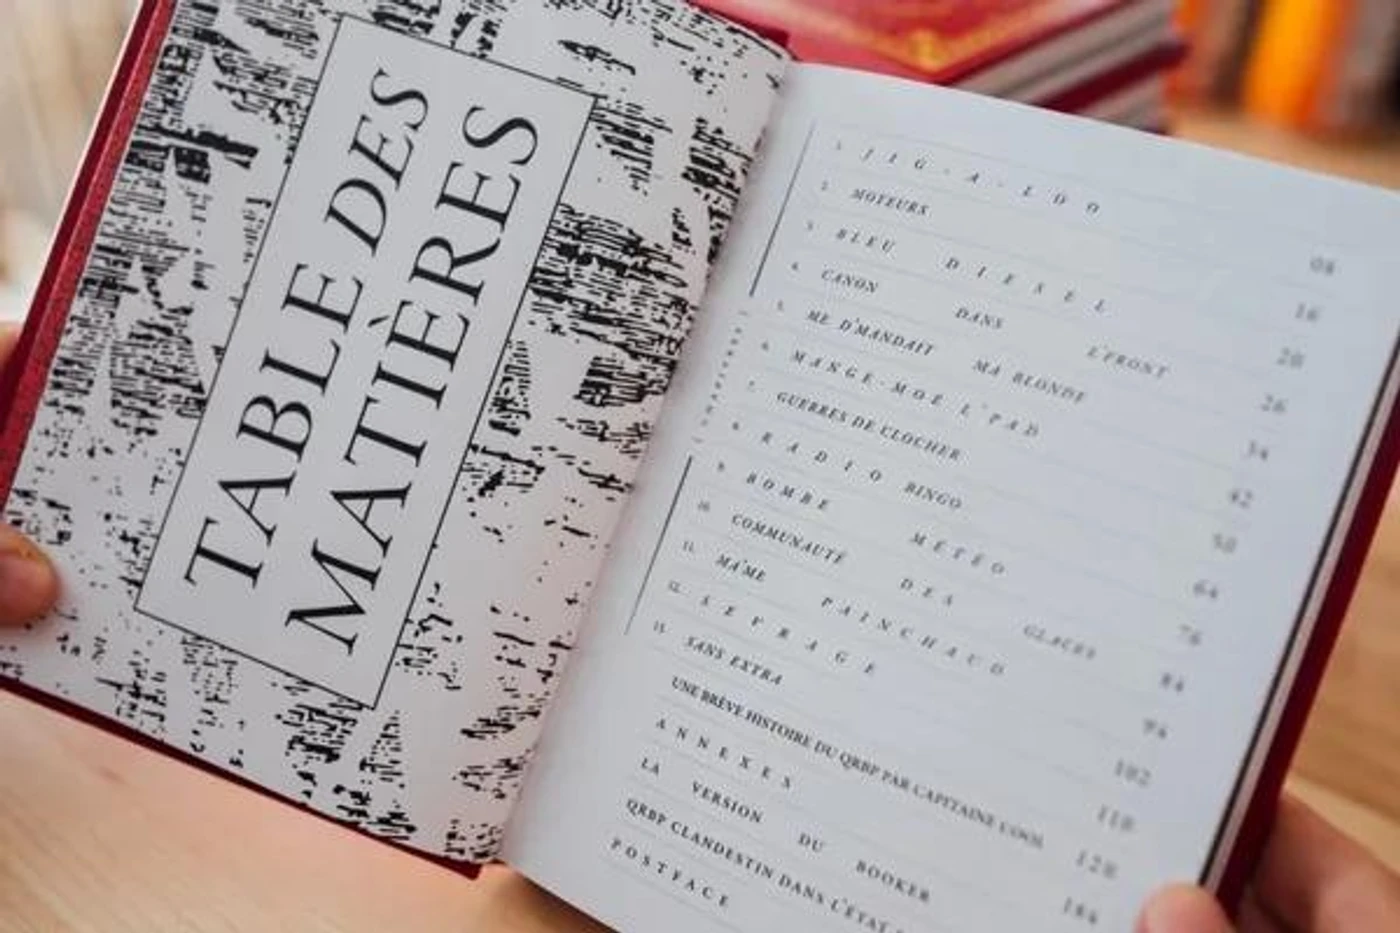 TABLE DES
MATIÈRES
1. JIG-A-LOO 08
2. MOTEURS 16
3. BLEU DIESEL 20
4. CANON DANS L'FRONT 26
5. ME D'MANDAIT MA BLONDE 34
6. MANGE-MOÉ L'PAD 42
7. GUERRES DE CLOCHER 50
8. RADIO BINGO 64
9. BOMBE MÉTÉO 76
10. COMMUNAUTÉ DES GLACES 84
11. MA'ME PAINCHAUD 94
12. SEVRAGE 102
13. SANS EXTRA 110
UNE BRÈVE HISTOIRE DU QRBP PAR CAPITAINE COOL 128
ANNEXES
LA VERSION DU BOOKER
QRBP CLANDESTIN DANS L'ÉTAT
POSTFACE